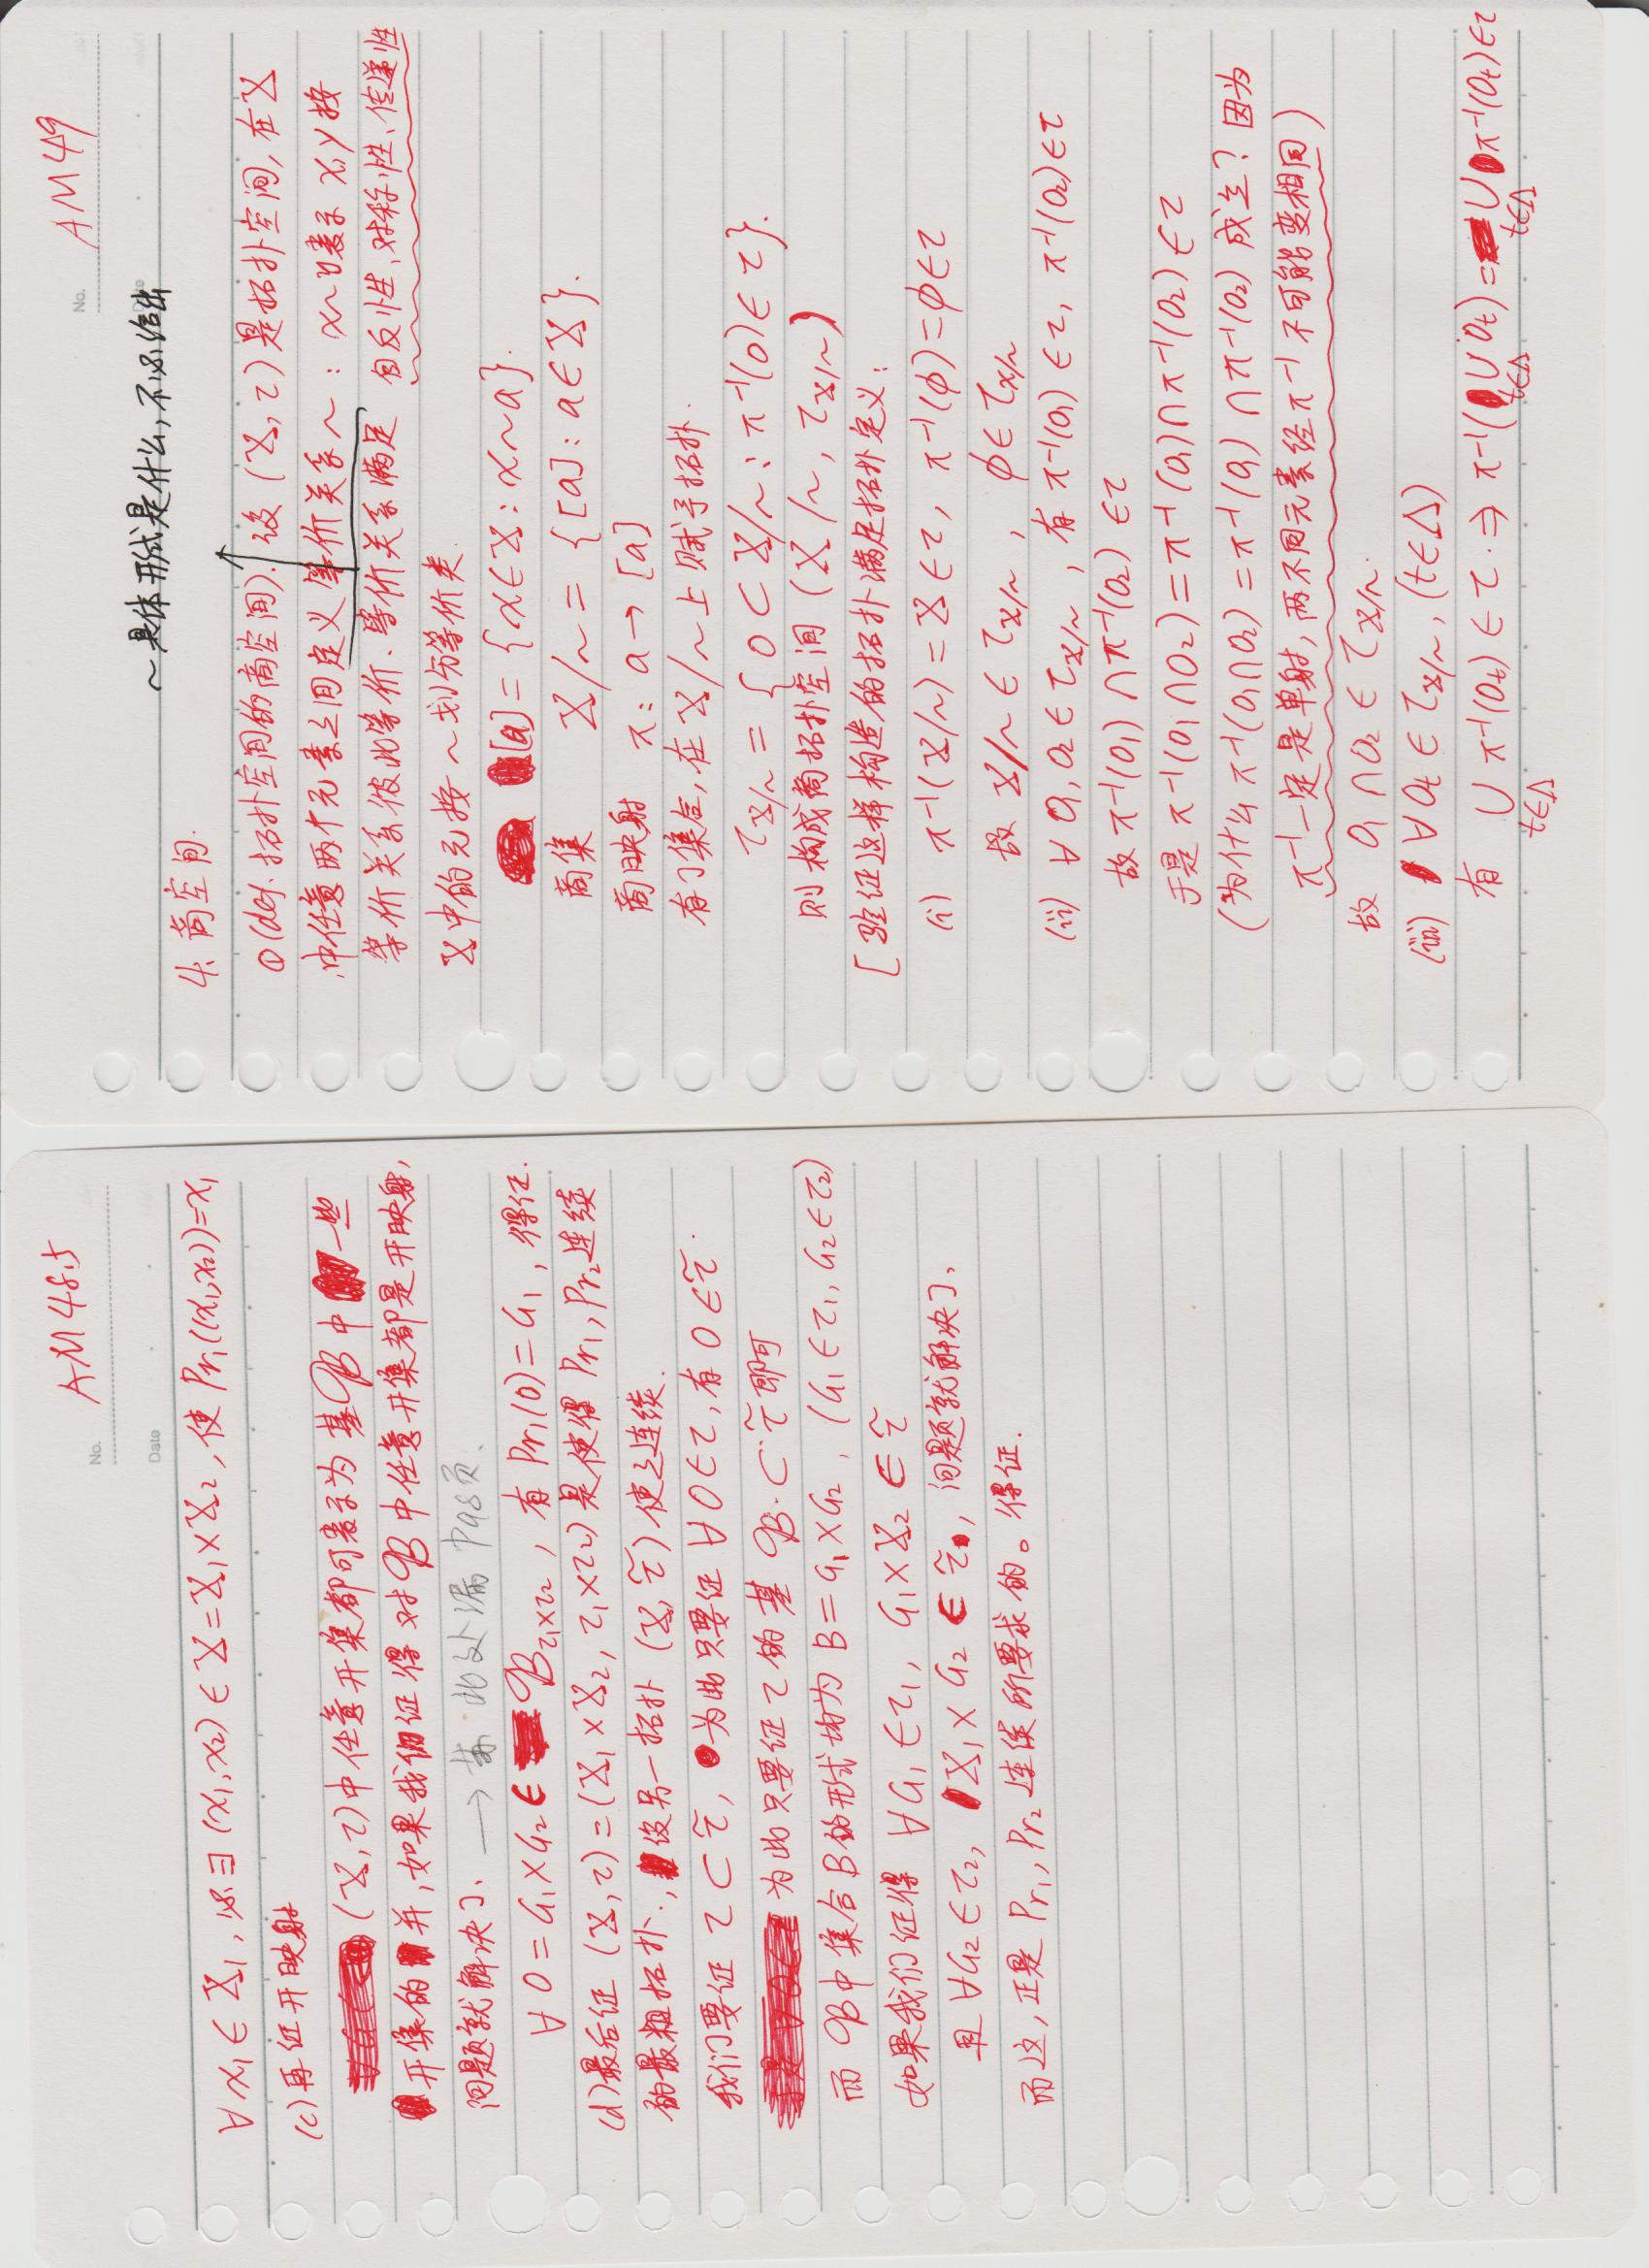 No. AM 48.5
Date
∀ x₁ ∈ X₁, 必∃ (x₁, x₂) ∈ X = X₁ × X₂, 使 Pr₁((x₁,x₂)) = x₁
(c) 再证开映射
(X, τ) 中任意开集都可表示为基 ℬ 中 一些
开集的 并, 如果我们证得对 ℬ 中任意开集都是开映射,
问题就解决了. → 此处漏 P98页.
∀ O = G₁ × G₂ ∈ ℬτ₁×τ₂, 有 Pr₁(O) = G₁, 得证.
(d) 最后证 (X, τ) = (X₁ × X₂, τ₁ × τ₂) 是使得 Pr₁, Pr₂ 连续
的最粗拓扑., 设另一拓扑 (X, τ̃) 使之连续.
我们要证 τ ⊂ τ̃, 为此只要证 ∀ O ∈ τ, 有 O ∈ τ̃.
为此只要证 τ 的基 ℬ ⊂ τ̃ 即可
而 ℬ 中集合 B 的形式均为 B = G₁ × G₂, (G₁ ∈ τ₁, G₂ ∈ τ₂)
如果我们证得 ∀ G₁ ∈ τ₁, G₁ × X₂ ∈ τ̃
且 ∀ G₂ ∈ τ₂, X₁ × G₂ ∈ τ̃, 问题就解决了.
而这, 正是 Pr₁, Pr₂ 连续所要求的。得证.
No. AM 49
Date
~ 具体形式是什么, 不必给出
4. 商空间.
① (def. 拓扑空间的商空间). 设 (X, τ) 是拓扑空间, 在 X
中任意两个元素之间定义等价关系 ~ : x~y 表示 x, y 按
等价关系彼此等价. 等价关系满足 自反性、对称性、传递性
X 中的元按 ~ 划分等价类.
[a] = {x ∈ X : x ~ a}.
商集 X/~ = {[a] : a ∈ X}.
商映射 π : a → [a]
有了集合, 在 X/~ 上赋予拓扑.
τ_X/~ = {O ⊂ X/~ : π⁻¹(O) ∈ τ}.
则构成商拓扑空间 (X/~, τ_X/~)
[验证这样构造的拓扑满足拓扑定义:
(i) π⁻¹(X/~) = X ∈ τ, π⁻¹(φ) = φ ∈ τ
故 X/~ ∈ τ_X/~, φ ∈ τ_X/~
(ii) ∀ O₁, O₂ ∈ τ_X/~, 有 π⁻¹(O₁) ∈ τ, π⁻¹(O₂) ∈ τ
故 π⁻¹(O₁) ∩ π⁻¹(O₂) ∈ τ
于是 π⁻¹(O₁ ∩ O₂) = π⁻¹(O₁) ∩ π⁻¹(O₂) ∈ τ
(为什么 π⁻¹(O₁ ∩ O₂) = π⁻¹(O₁) ∩ π⁻¹(O₂) 成立? 因为
π⁻¹ 一定是单射, 两不同元素经 π⁻¹ 不可能变相同)
故 O₁ ∩ O₂ ∈ τ_X/~.
(iii) ∀ Oₜ ∈ τ_X/~, (t ∈ Δ)
有 ∪ π⁻¹(Oₜ) ∈ τ. ⇒ π⁻¹(∪ Oₜ) = ∪ π⁻¹(Oₜ) ∈ τ
t∈Δ t∈Δ t∈Δ